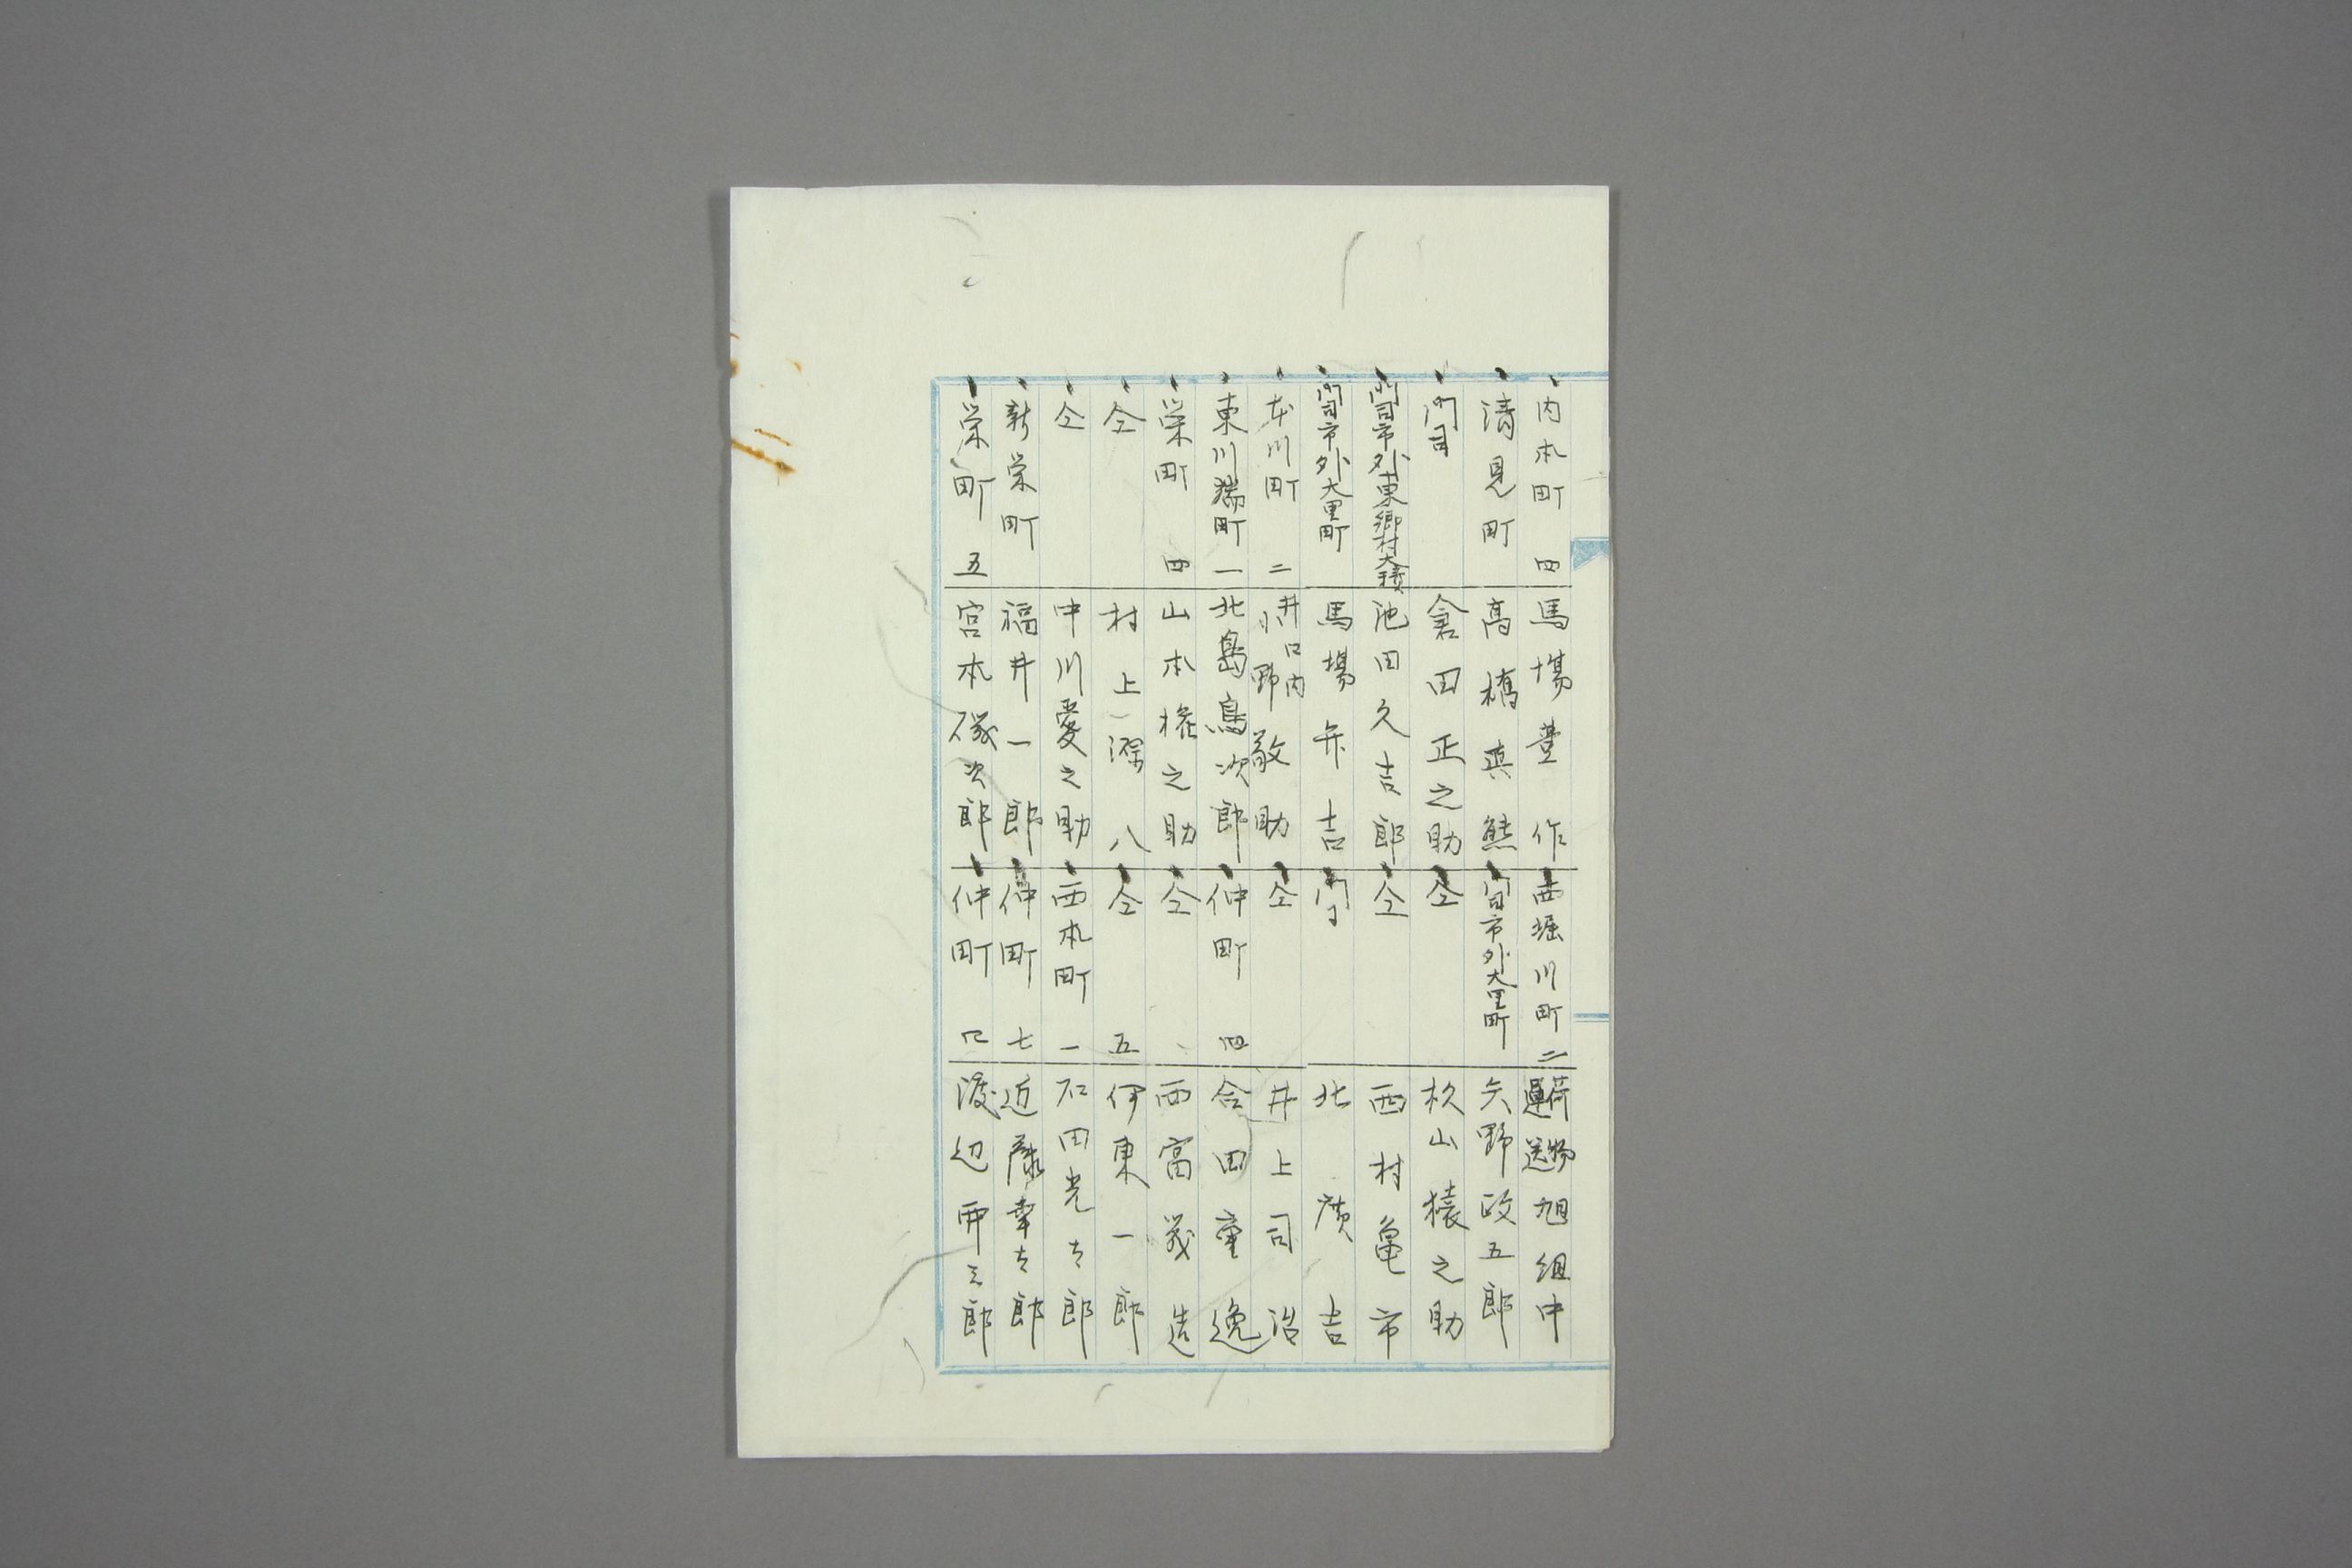 内本町 四 馬場豊作
清見町 高橋真熊
門司 倉田正之助
門司市外東郷村大積 池田久吉郎
門司市外大里町 馬場弁吉
本川町 二 井口内 小野敬助
東川端町 一 北島鳥次郎
栄町 四 山本権之助
仝 村上深八
仝 中川愛之助
新栄町 福井一郎
栄町 五 宮本磯次郎
西堀川町 二 荷物運送 旭組中
門司市外大里町 矢野政五郎
仝 杉山猿之助
仝 西村亀市
門司 北廣吉
仝 井上司治
仲町 四 合田重逸
仝 西富義造
仝 五 伊東一郎
西本町 一 石田光太郎
仲町 七 近藤幸太郎
仲町 渡辺弥三郎